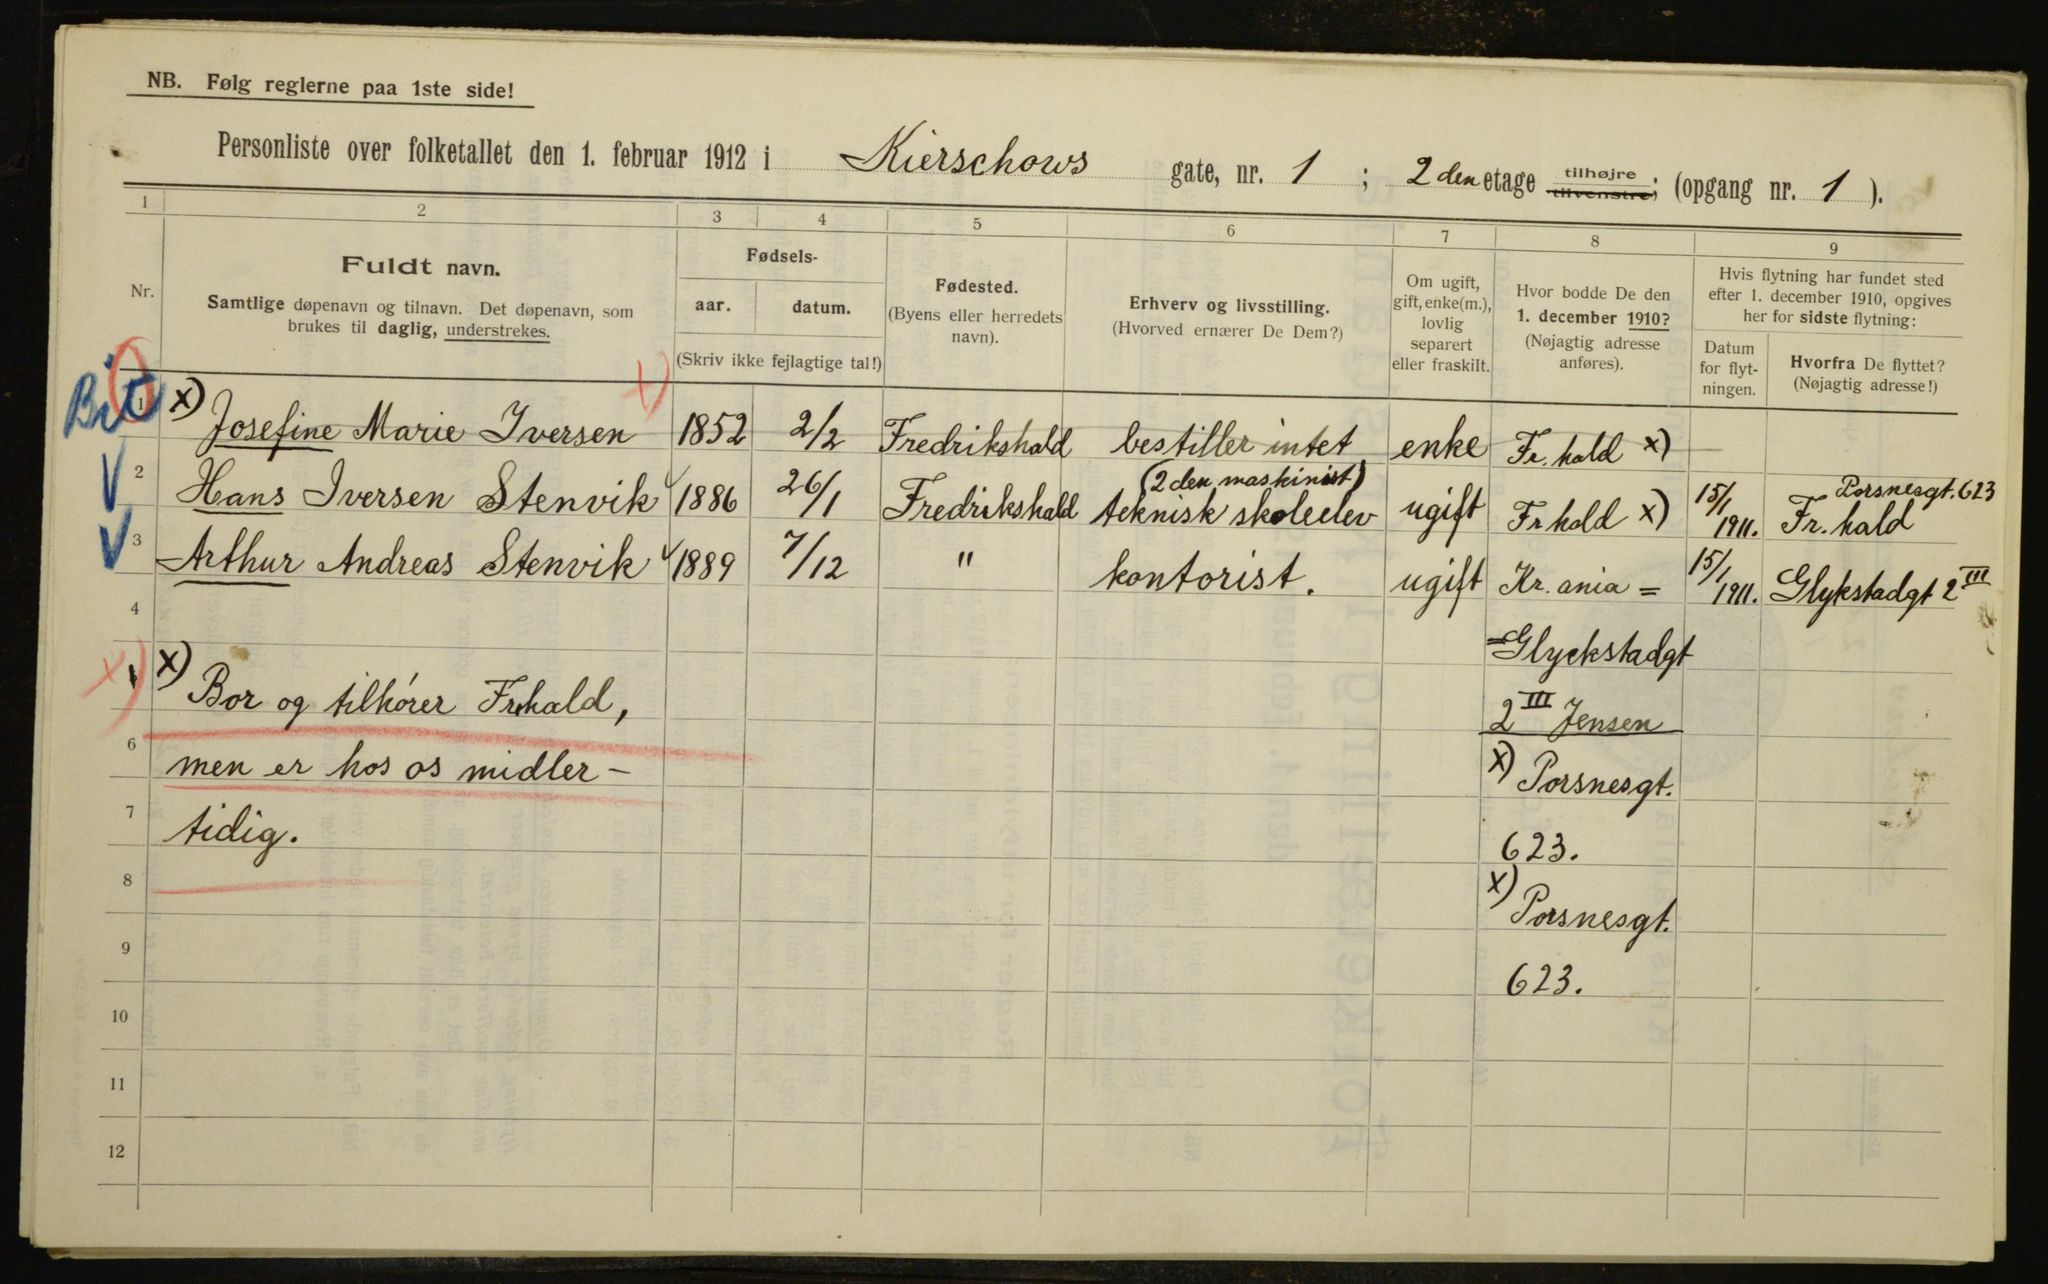 NB. Følg reglerne paa 1ste side!
Personliste over folketallet den 1. februar 1912 i Kierschows gate, nr. 1 ; 2 den etage tilhøjre tilvenstre; (opgang nr. 1 ).
1 2 3 4 5 6 7 8 9
Nr.
Fuldt navn.
Samtlige døpenavn og tilnavn. Det døpenavn, som
brukes til daglig, understrekes.
Fødsels-
aar. datum.
(Skriv ikke fejlagtige tal!)
Fødested.
(Byens eller herredets
navn).
Erhverv og livsstilling.
(Hvorved ernærer De Dem?)
Om ugift,
gift, enke(m.),
lovlig
separert
eller fraskilt.
Hvor bodde De den
1. december 1910?
(Nøjagtig adresse
anføres).
Hvis flytning har fundet sted
efter 1. december 1910, opgives
her for sidste flytning:
Datum
for flyt-
ningen.
Hvorfra De flyttet?
(Nøjagtig adresse!)
1 x) Josefine Marie Iversen x) 1852 2/2 Fredrikshald bestiller intet enke Fr. hald x) —
2 Hans Iversen Stenvik 1886 26/1 Fredrikshald (2 den maskinist) teknisk skoleelev ugift Fr hald x) 15/1 1911. Porsnesgt. 623 Fr. hald
3 Arthur Andreas Stenvik 1889 7/12 " kontorist. ugift Kr. ania = 15/1 1911. Glykstadgt 2 III
4
=Glyckstadgt
x) Bor og tilhører Frhald,
2 III Jensen
6
men er hos os midler-
x) Porsnesgt.
7
tidig.
623.
8
x) Porsnesgt.
9
623.
10
11
12